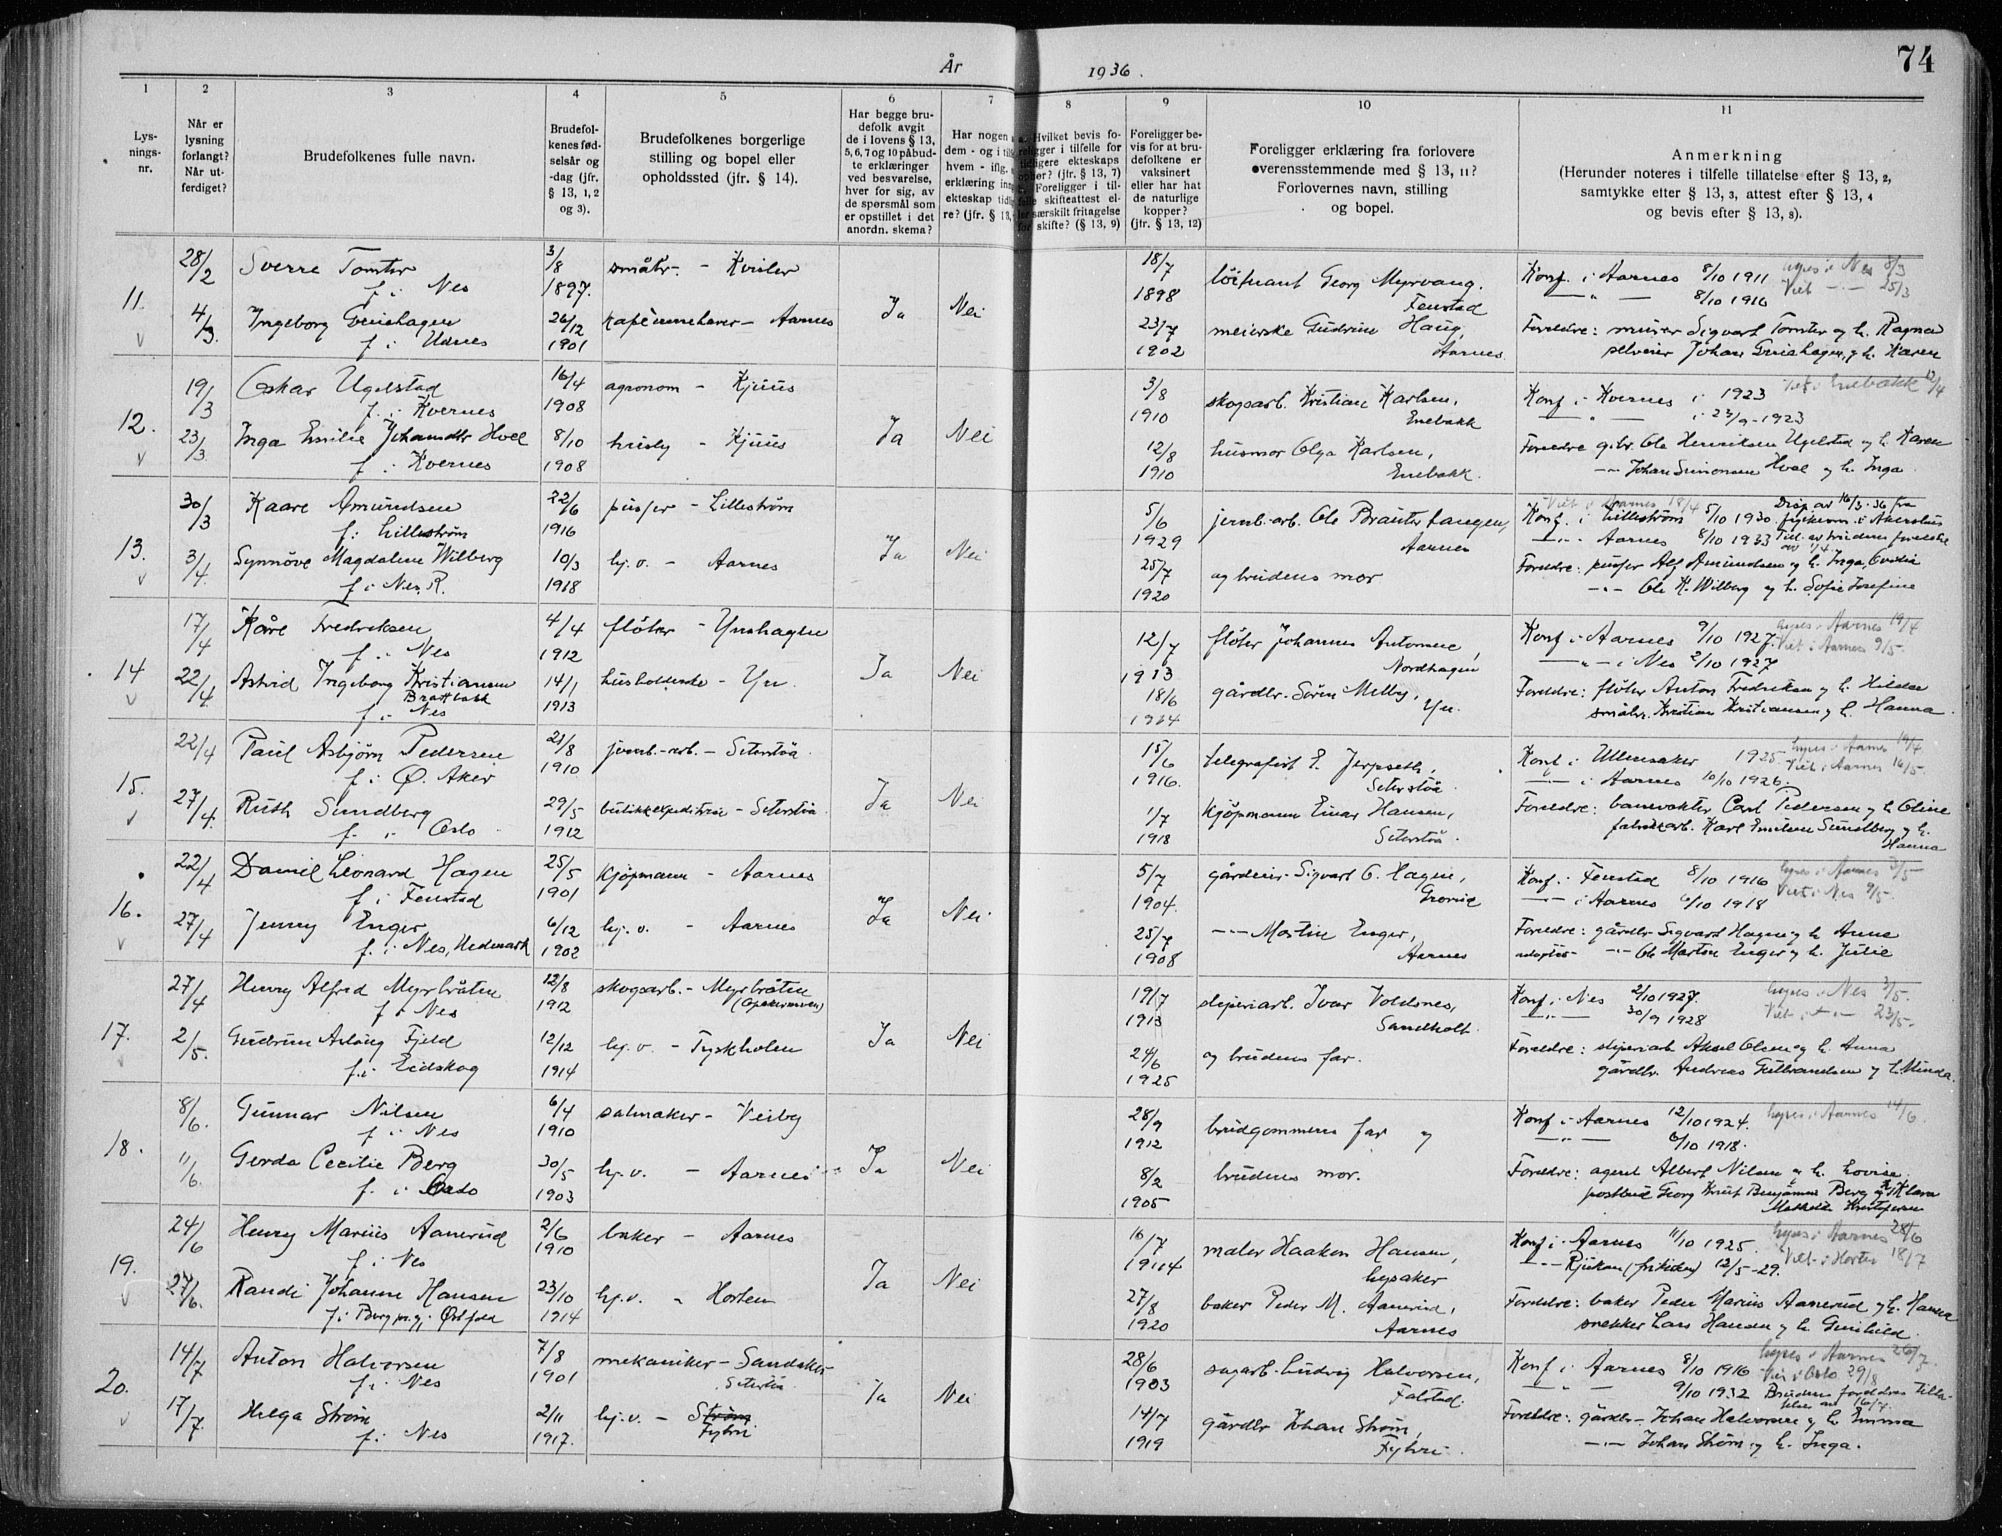 74
År 1936.
1 2 3 4 5 6 7 8 9 10 11
Lys-
nings-
nr.
Når er
lysning
forlangt?
Når ut-
ferdiget?
Brudefolkenes fulle navn.
Brudefol-
kenes fød-
selsår og
-dag (jfr.
§ 13, 1, 2
og 3).
Brudefolkenes borgerlige
stilling og bopel eller
opholdssted (jfr. § 14).
Har begge bru-
defolk avgit
de i lovens § 13,
5, 6, 7 og 10 påbud-
te erklæringer
ved besvarelse,
hver for sig, av
de spørsmål som
er opstillet i det
anordn. skema?
Har nogen
dem - og i
hvem - iflg.
erklæring
ekteskap
re? (jfr. § 13,
Hvilket bevis fo-
religger i tilfelle for
tidligere ekteskaps
ophør? (jfr. § 13, 7)
Foreligger i til-
felle skifteattest el-
ler særskilt fritagelse
for skifte? (§ 13, 9)
Foreligger be-
vis for at bru-
defolkene er
vaksinert
eller har hat
de naturlige
kopper?
(jfr. § 13, 12)
Foreligger erklæring fra forlovere
overensstemmende med § 13, 11?
Forlovernes navn, stilling
og bopel.
Anmerkning
(Herunder noteres i tilfelle tillatelse efter § 13, 2,
samtykke efter § 13, 3, attest efter § 13, 4
og bevis efter § 13, 8).
11. 28/2 Sverre Tomter 3/8 småbr. - Kvisler 18/7 Konf. i Aarnes 8/10 1911 lyses i Nes 8/3
f. i Nes 1897. Ja Nei 1898 løitnant Georg Myrvang, Fenstad 8/10 1916 Viet 25/3
4/3. Ingeborg Grushagen 26/12 kaféinnehaver - Aarnes 23/7 meierske Gudrun Haug, Foreldre: murer Sigvart Tomter og h. Ragna
f. i Udnes 1901 1902 Aarnes. selveier Johan Grushagen og h. Karen
12. 19/3 Oskar Ugelstad 16/4 agronom - Kjuus 3/8 skogsarb. Kristian Karlsen, Konf i Kvernes i 1923 Viet i Enebakk 12/4
f. i Kvernes 1908 Ja Nei 1910 Enebakk i 23/9-1923
23/3 Inga Emilie Johansdtr Hoel 8/10 husby - Kjuus 12/8 husmor Olga Karlsen, Foreldre g.br. Ole Henriksen Ugelstad og h. Karen
f. i Kvernes 1908 1910 Enebakk. Johan Simonsen Hoel og h. Inga
13. 30/3 Kaare Amundsen 22/6 pusser - Lillestrøm 5/6 jernb.arb. Ole Brauter Langen, Viet i Aarnes 18/4 Disp av 16/3-36 fra
f. i Lillestrøm 1916 Ja Nei 1929 Aarnes Konf. i Lillestrøm 5/10 1930. fylkesm. i Akershus
3/4. Synnøve Magdalene Wilberg 10/3 hj.v. - Aarnes 25/7 og brudens mor Aarnes 8/10 1933 Till. av brudens foreldre
f. i Nes, R. 1918 1920 Foreldre: pusser Alf Amundsen og h. Inga
Ole K. Wilberg og h. Sofie Josefine
14 17/4 Kåre Fredriksen 4/4 fløter - Ynshagen 12/7 fløter Johannes Antonsen, Konf i Aarnes 9/10 1927. lyses i Aarnes 19/4
f. i Nes 1912 Ja Nei 1913 Nordhagen i Nes 2/10 1927 Viet i Aarnes 9/5.
22/4. Astrid Ingeborg Kristiansen 14/1 husholderske - Yn. 18/6 gårdbr. Søren Melby, Foreldre: fløter Anton Fredriksen og h. Hilda
Brattbakk
f. i Nes 1913 1914 Yn. småbr. Kristian Kristiansen og h. Hanna
15. 22/4 Paul Asbjørn Pedersen 21/8 jernb.-arb. - Seterstøa 15/6 telegrafist E. Jerpseth, Konf i Ullensaker 1925 lyses i Aarnes 19/4.
f. i Ø. Aker 1910 Ja Nei 1916. Seterstøa i Aarnes 10/10 1926. Viet i Aarnes 16/5.
27/4. Ruth Sundberg 29/5 butikkexpeditrise - Seterstøa 1/7 Kjøpmann Einar Hansen, Foreldre: banevokter Carl Pedersen og h Oline
f. i Oslo 1912 1918 Seterstøa. fabrikkarb. Karl Emilson Sundberg og h. Hanna
16. 22/4 Daniel Leonard Hagen 25/5 kjøpmann - Aarnes 5/7 gårdeier Sigvart O. Hagen, Konf. i Fenstad 8/10 1916 lyses i Aarnes 3/5
f. i Fenstad 1901 Ja Nei 1904. i Aarnes 6/10 1918 Viet i Nes 9/5.
27/4 Jenny Enger 6/12 hj.v. - Aarnes 25/7 Martin Enger, Foreldre: gårdbr Sigvard Hagen og h. Anne
f. i Nes, Hedmark 1902 1908 Aarnes adoptiv- Ole Martin Enger og h. Julie
17. 27/4 Henry Alfred Myrbråten 12/8 skogsarb. - Myrbråten 19/7 sliperiarb. Ivar Voldsnes, Konf. i Nes 2/10 1927. lyses i Nes 3/5.
f. i Nes 1912 Ja Nei 1913 Sandholt. 30/9 1928 Viet 23/5.
2/5. Gudrun Aslaug Fjeld 12/12 hj.v. - Tyskholen 24/6 og brudens far. Foreldre: sliperiarb Aksel Olsen og h. Anna
f. i Eidskog 1914 1925 gårdbr. Andreas Gulbrandsen og h. Minda.
18. 8/6. Gunnar Nilsen 6/4 salmaker - Veiby 28/9 brudgommens far og Konf i Aarnes 12/10 1924. lyses i Aarnes 14/6
f. i Nes 1910 Ja Nei 1912 6/10 1918.
11/6. Gerda Cecilie Berg 30/5 hj.v. - Aarnes 8/2 brudens mor. Foreldre: agent Albert Nilsen og h. Lovise.
f. i Oslo 1903 1905 postbud Georg Knut Benjamin Berg og h. Klara
Mathilde Kristofersen
19. 24/6 Henry Marius Aanerud 2/6 baker - Aarnes 16/7 maler Haakon Hansen, Konf i Aarnes 11/10 1925. lyses i Aarnes 28/6
f. i Nes 1910 Ja Nei 1914 Lysaker Rjukan (frikirken) 12/5-29. Viet i Horten 18/7
27/6. Randi Johanne Hansen 23/10 hj.v. " Horten 27/8 baker Peder M. Aanerud, Foreldre: baker Peder Marius Aanerud og h. Hanna
f. i Berg pr.gj. Østfold 1914 1920 Aarnes snekker Lars Hansen og h. Gunhild.
20. 14/7 Anton Halvorsen 7/8 mekaniker - Sandaker 28/6 sagarb. Ludvig Halvorsen, Konf i Aarnes 8/10 1916 lyses i Aarnes 26/7.
f. i Nes 1901 Seterstøa Ja Nei 1903 Falstad. 9/10 1932 Viet i Oslo 29/8
17/7. Helga Strøm 2/11 hj.v. - Strøm 14/7 gårdbr Johan Strøm, Brudens foreldres tilla-
telse av 16/7.
f. i Nes 1917. Fyhri 1919 Fyhri. Foreldre: gårdbr - Johan Halvorsen og h. Emma
Johan Strøm og h. Inga.